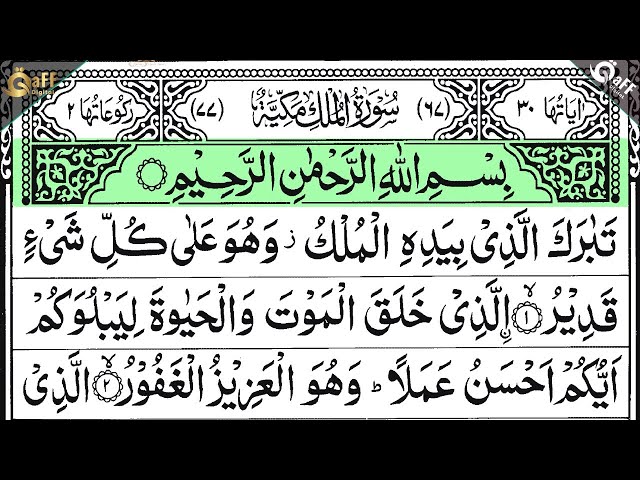 Qaff Digital
Qaff
اٰیَاتُهَا ٣٠ (٦٧) سُوْرَةُ الْمُلْكِ مَكِّیَّةٌ (٧٧) رُكُوْعَاتُهَا ٢
بِسْمِ اللّٰهِ الرَّحْمٰنِ الرَّحِیْمِ
تَبٰرَكَ الَّذِیْ بِیَدِهِ الْمُلْكُ ز وَهُوَ عَلٰی كُلِّ شَیْءٍ
قَدِیْرُ ۙ﴿١﴾ ِۨالَّذِیْ خَلَقَ الْمَوْتَ وَالْحَیٰوةَ لِیَبْلُوَكُمْ
اَیُّكُمْ اَحْسَنُ عَمَلًا ؕ وَهُوَ الْعَزِیْزُ الْغَفُوْرُ ۙ﴿٢﴾ الَّذِیْ